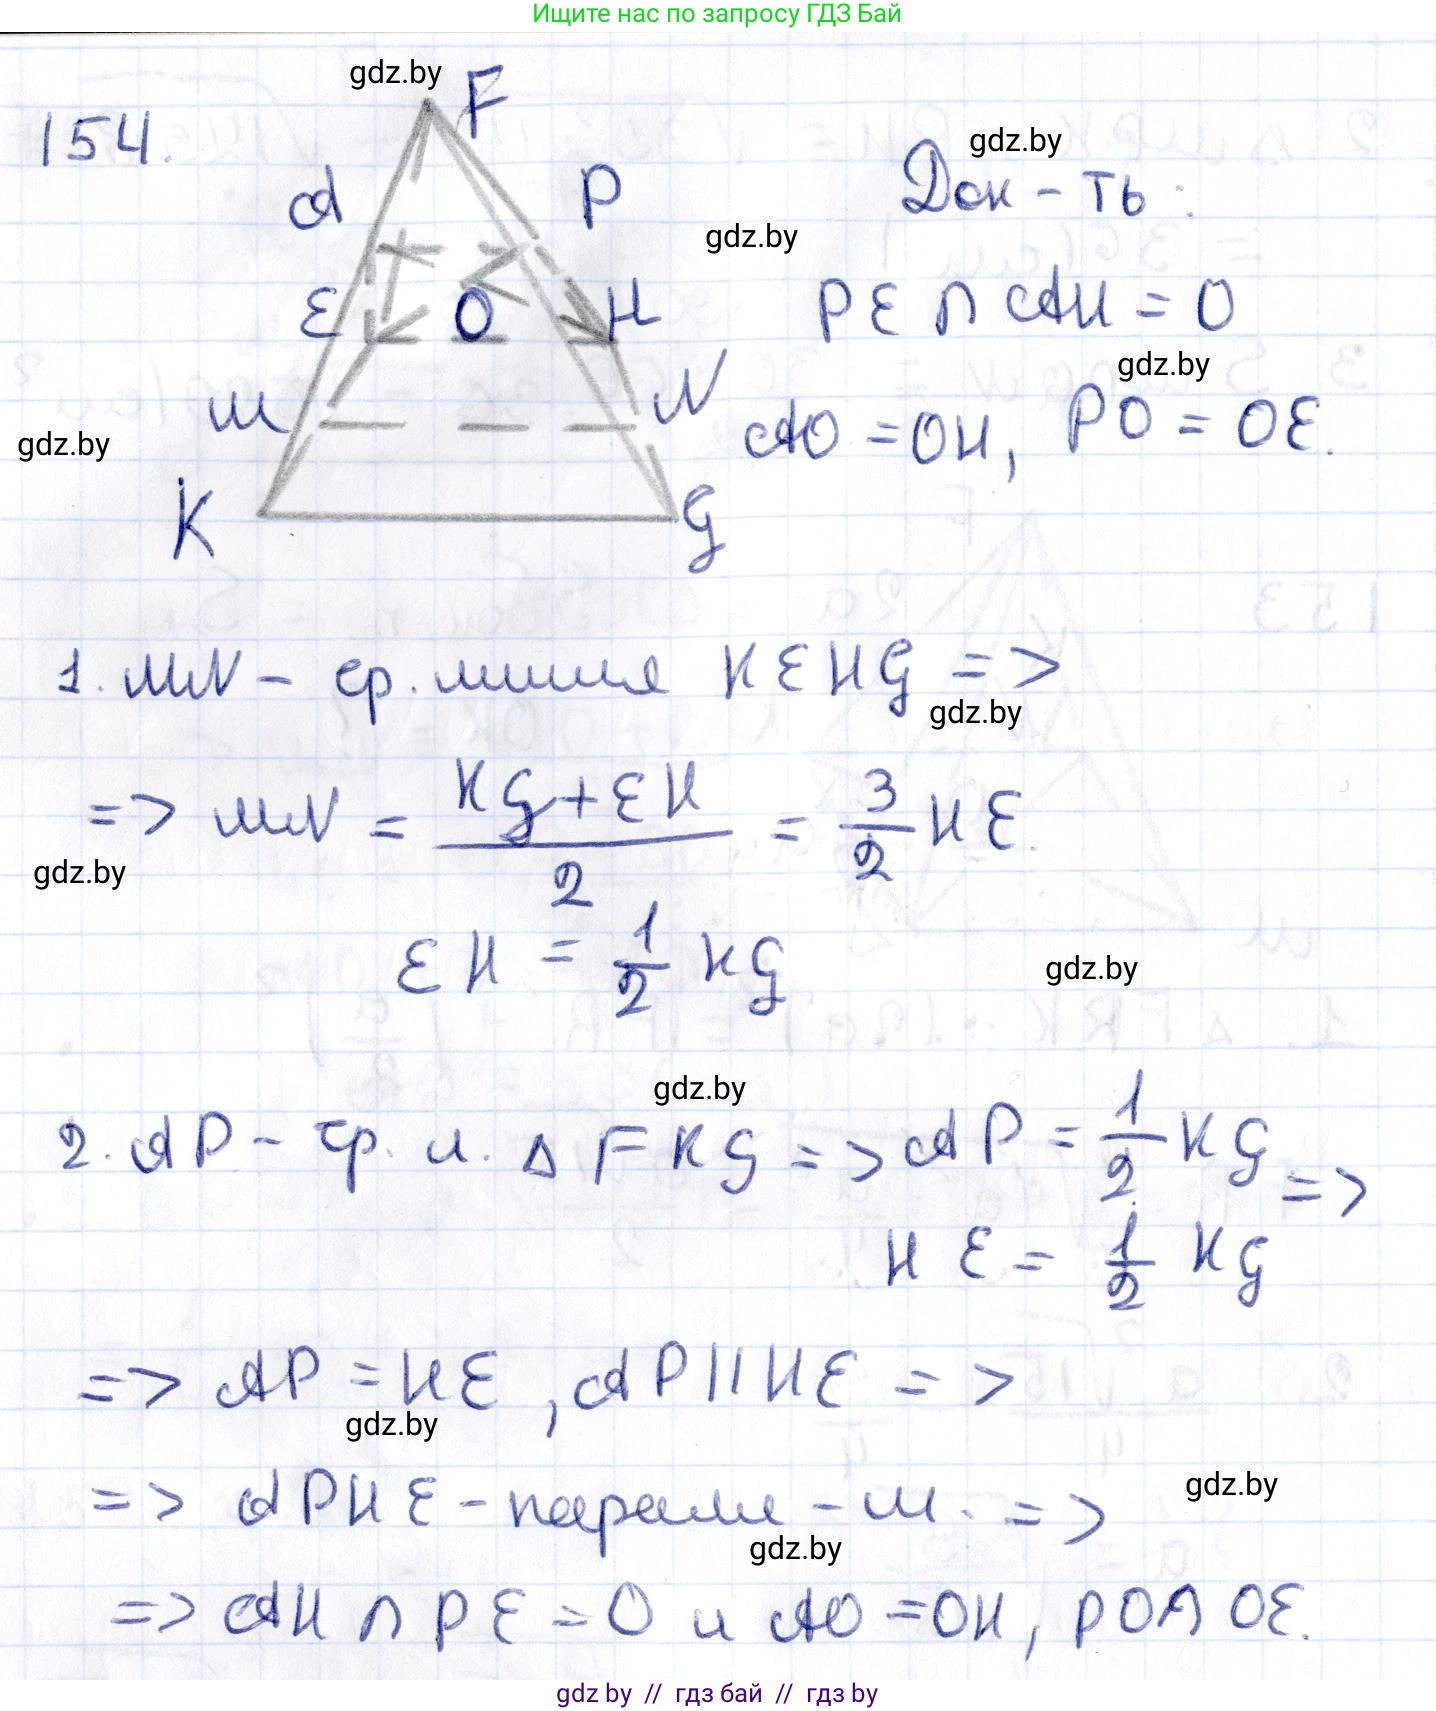 Ищите нас по запросу ГДЗ Бай
gdz.by
154.
F
A
P
E
O
H
M
N
K
G
gdz.by
Док-ть:
gdz.by
PE ∩ AH = O
gdz.by
AO = OH, PO = OE.
gdz.by
1. MN - ср. линия KEHG =>
gdz.by
=> MN = (KG + EH)/2 = 3/2 HE.
gdz.by
EH = 1/2 KG
gdz.by
gdz.by
2. AP - ср. л. △ FKG => AP = 1/2 KG =>
HE = 1/2 KG
=> AP = HE, AP || HE =>
gdz.by
=> APHE - паралл-м. =>
gdz.by
gdz.by
=> AH ∩ PE = O и AO = OH, PO ∩ OE.
gdz by // гдз бай // гдз by